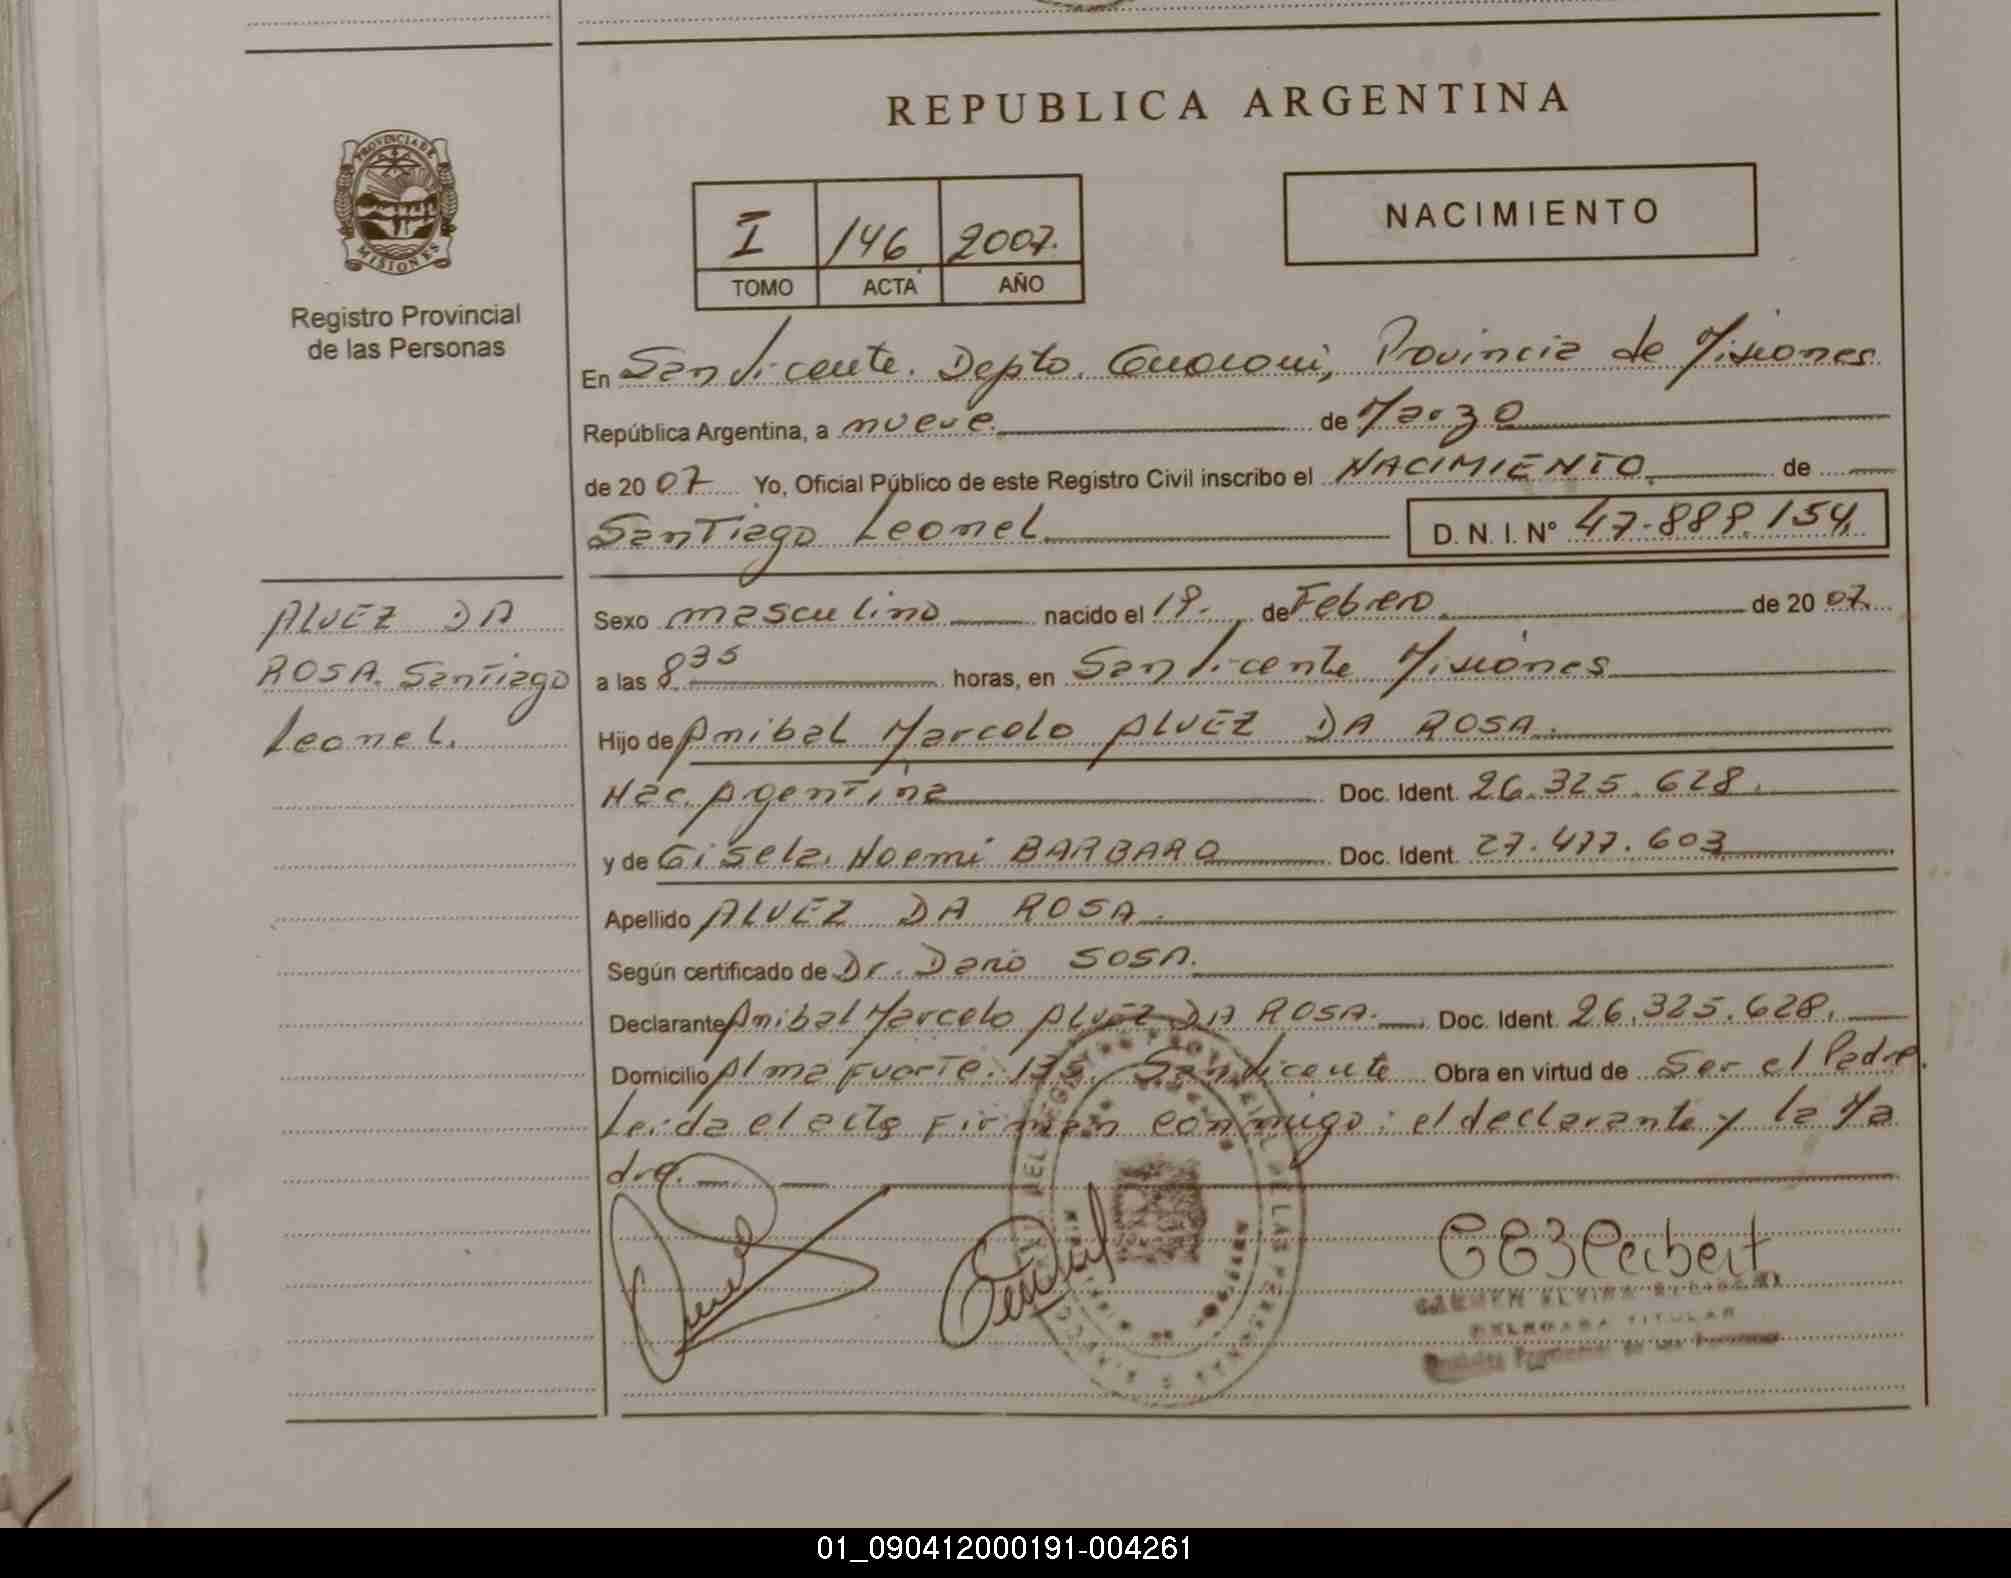 REPUBLICA ARGENTINA
PROVINCIA DE
MISIONES
Registro Provincial
de las Personas
I 146 2007.
TOMO ACTA AÑO
NACIMIENTO
En San Vicente. Depto. Guarani, Provincia de Misiones
República Argentina, a nueve. de Marzo
de 20 07 Yo, Oficial Público de este Registro Civil inscribo el NACIMIENTO de
Santiago Leonel D. N. I. Nº 47.889.154.
ALVEZ DA
ROSA. Santiago
Leonel.
Sexo masculino nacido el 19. de Febrero de 20 07.
a las 8 35 horas, en San Vicente Misiones
Hijo de Anibal Marcelo ALVEZ DA ROSA.
Nac. Agentina Doc. Ident. 26.325.628.
y de Gisela Noemi BARBARO Doc. Ident. 27.477.603
Apellido ALVEZ DA ROSA.
Según certificado de Dr. Dario SOSA.
Declarante Anibal Marcelo ALVEZ DA ROSA. Doc. Ident. 26.325.628.
Domicilio Alma Fuerte. 135 San Vicente Obra en virtud de Ser el Padre.
Leida el acta Firman conmigo: el declarante y la Ma
dre.
DELEGADA TITULAR
Registro Provincial de las Personas
01_090412000191-004261